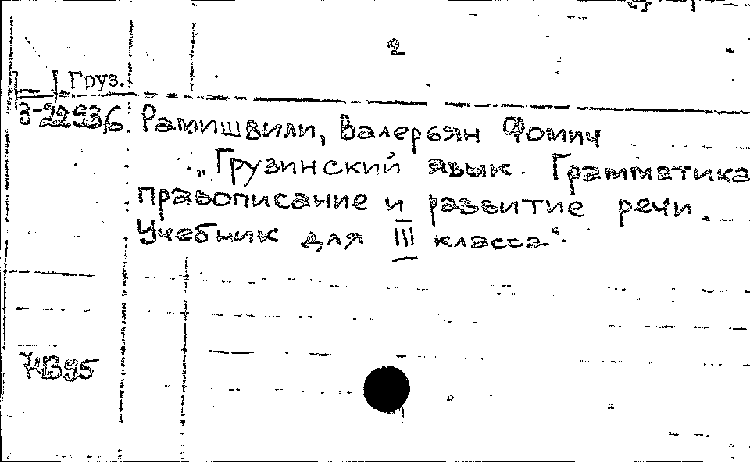 2
Груз.
3-22936. Рамишвили, Валерьян Фомич
„Грузинский язык. Грамматика
правописание и развитие речи.
Учебник для III класса“.